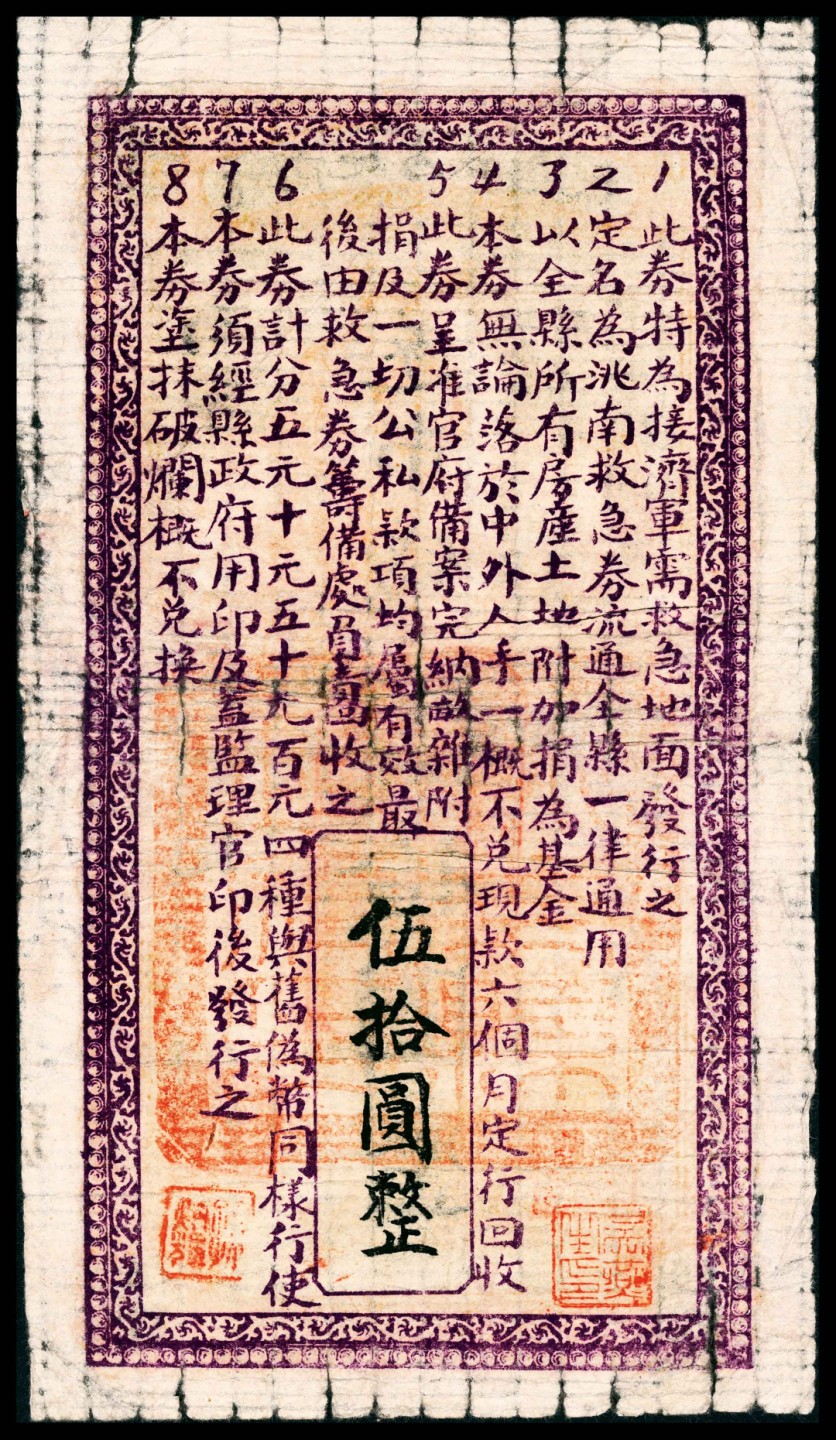 1 此券特為接濟軍需救急地面發行之
2 定名為洮南救急券流通全縣一律通用
3 以全縣所有房產土地附加捐為基金
4 本券無論落於中外人手一概不兌現款六個月定行回收
5 此券呈准官府備案完納畝雜附
捐及一切公私款項均屬有效最
後由救急券籌備處負責收之
6 此券計分五元十元五十元百元四種與舊偽幣同樣行使
7 本券須經縣政府用印及蓋監理官印後發行之
8 本券塗抹破爛概不兌換
伍拾圓整